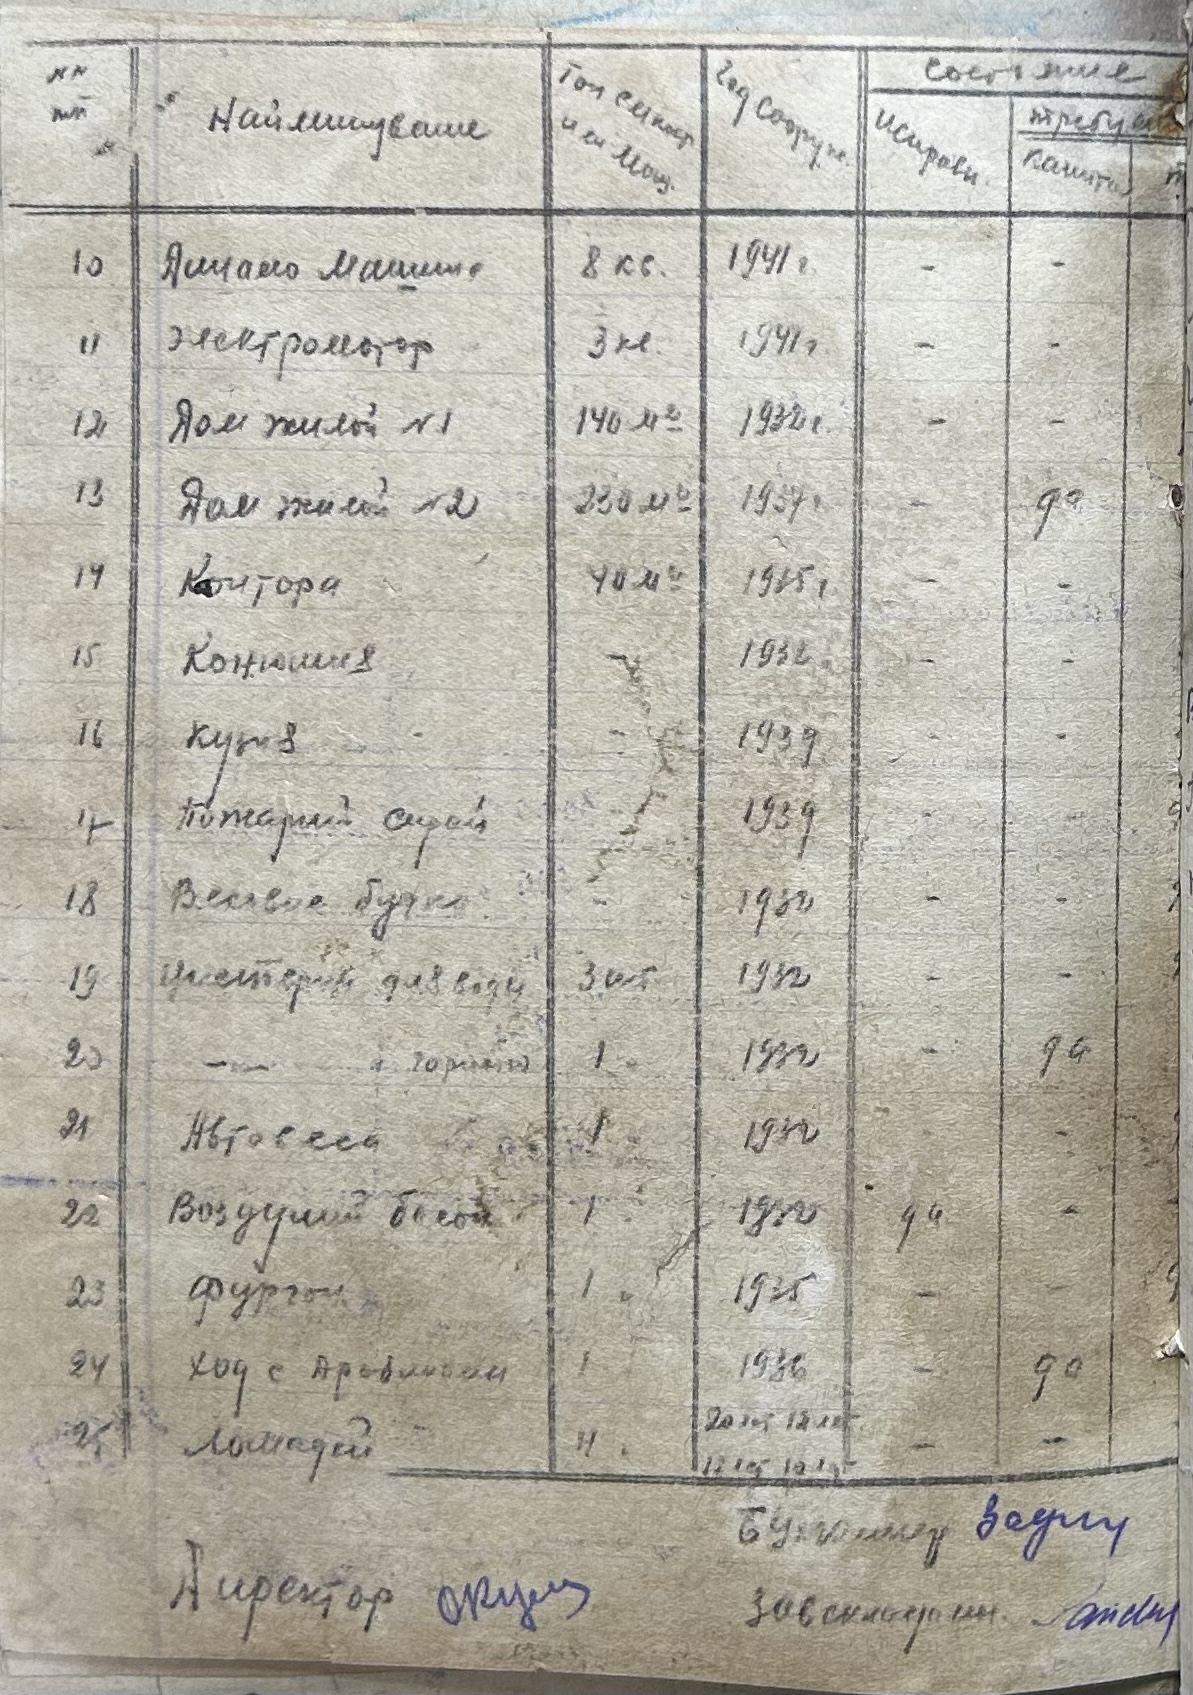 нн пп Наименуваше Год сооруж. состояние
исправн. требуе
капита
10 Динамо Машина 8 кв. 1941 г. - -
11 Электромотор 3 кв. 1941 г. - -
12 Дом жилой №1 140 м² 1932 г. - -
13 Дом жилой №2 230 м² 1937 г. - да
14 Контора 40 м² 1935 г. - -
15 Конюшня - 1932 - -
16 Кузня - 1939 - -
17 Пожарный сарай - 1939 - -
18 Весовое будка - 1932 - -
19 Цистерна для воды 1932 - -
20 —〃— 1 〃 1932 - да
21 Автовеса 1 1932 - -
22 Воздушний басон 1 〃 1932 да -
23 Фургон 1 〃 1935 - -
24 Ход с 1 1936 - да
25 Лошадей 4 〃 20 лет 12 лет - -
12 лет 10 лет
Бухгалтер
Директор Завскладами